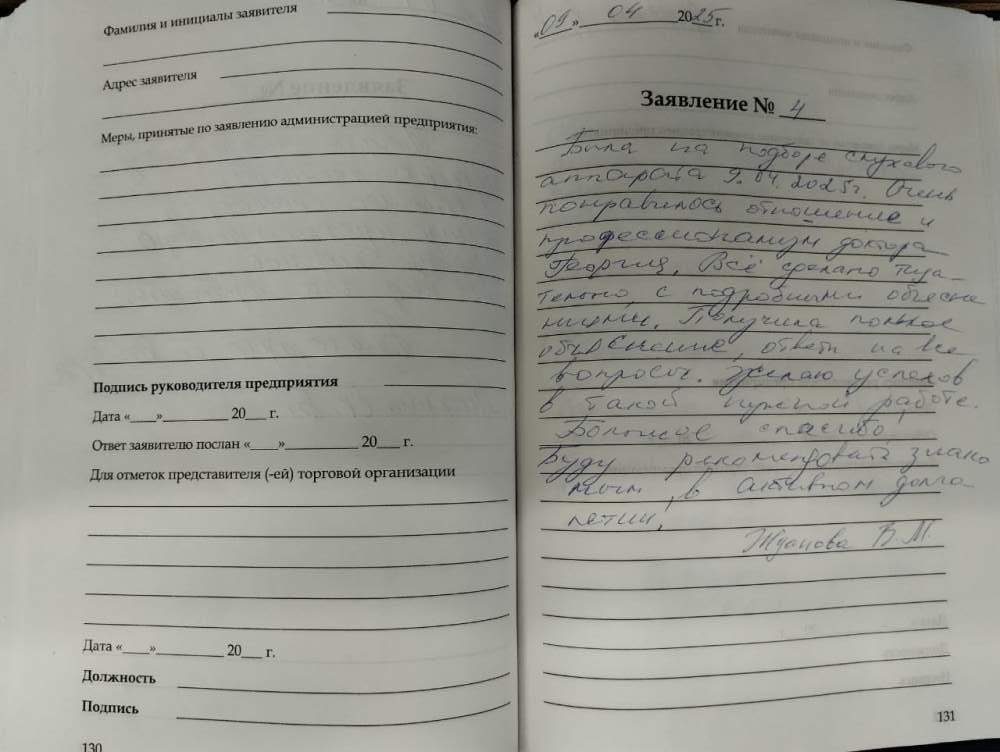 Фамилия и инициалы заявителя
Адрес заявителя
Меры, принятые по заявлению администрацией предприятия:
Подпись руководителя предприятия
Дата «___»__________ 20___ г.
Ответ заявителю послан «____»___________ 20___ г.
Для отметок представителя (-ей) торговой организации
Дата «____»__________ 20___ г.
Должность
Подпись
130
«09» 04 2025г.
Заявление № 4
Была на подборе слухового
аппарата 9.04.2025г. Очень
понравилось отношение и
профессионализм доктора
Георгия. Всё сделано тща-
тельно, с подробными объясне
ниями. Получила полное
объяснение, ответы на все
вопросы. Желаю успехов
в такой нужной работе.
Большое спасибо!
Буду рекомендовать знако
мым, в активном долго
летии!
В. М.
131